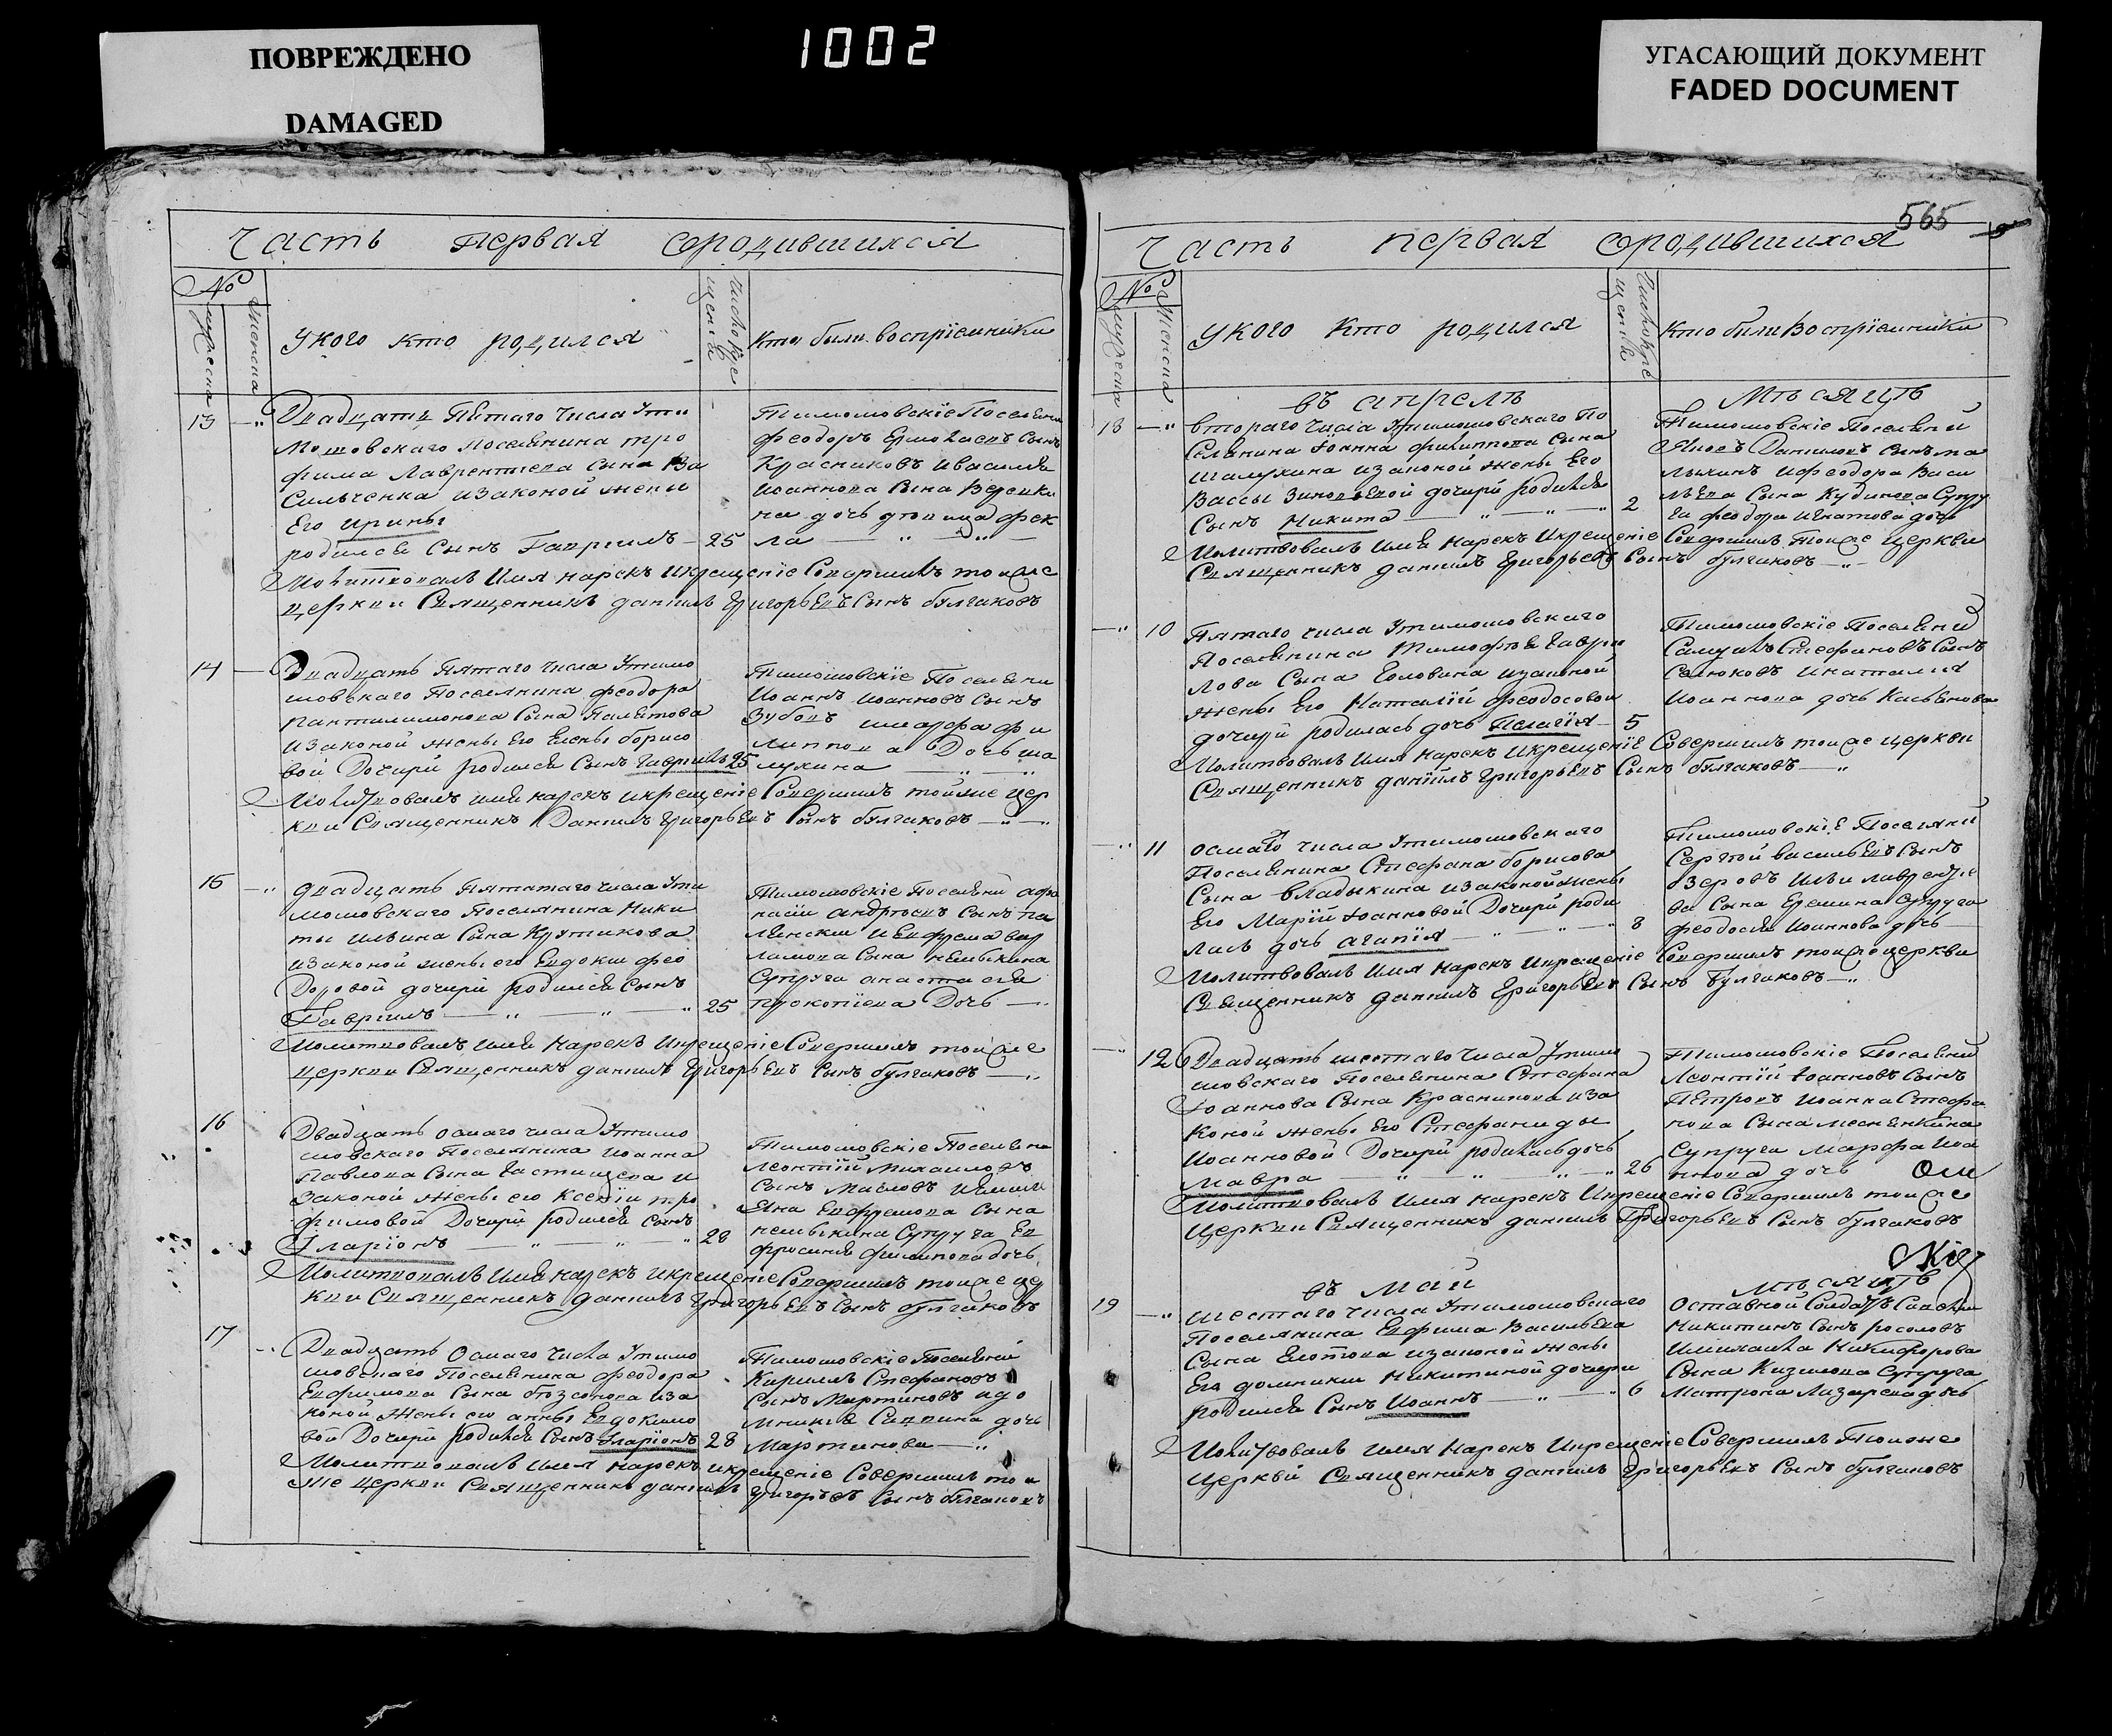 ПОВРЕЖДЕНО
DAMAGED
1002
УГАСАЮЩИЙ ДОКУМЕНТ
FADED DOCUMENT
Часть первая ородившихся
№
мужеска
женска
Укого кто родился
Число кре
щенїе
Кто были воспрїемники
13
Двадцать Пятаго числа Ути
мошовскаго поселянина тро
фима Лаврентиева сына Ва
сильченка изаконой жены
Его Ирины
родился сынъ Гавриилъ 25
Тимошовскїе Поселяни
феодоръ Ермолаевъ сынъ
Красниковъ
Иоаннова сына
на дочь девица фек
ла
Молитвовалъ имя нарекъ икрещенїе Совершилъ тояже
церкви Священникъ даниилъ Григорьевъ Сынъ булгаковъ
14
Двадцать Пятаго числа Утимо
шовскаго Поселянина феодора
Пантилимонова Сына
изаконой жены Его Елены борисо
вой Дочери родился Сынъ Гавриилъ 25
Тимошовскїе Поселяни
Иоаннъ Иоанновъ Сынъ
Зубовъ имарфа фи
липпова Дочь ша
лухина
Молитвовалъ имя нарекъ икрещенїе Совершилъ тойже цер
кви Священникъ Даниилъ Григорьевъ Сынъ булгаковъ
15
двадцать Пятатаго числа Ути
мошовскаго Поселянина Ники
ты ильина Сына Крутикова
изаконой жены его Евдокии фео
доровой дочери родился Сынъ
Гавриилъ 25
Тимошовскїе Поселяни афа
насiи андреевъ Сынъ
иЕвфрема вар
ламова Сына немыкина
Супруга анастасия
прокопїева Дочь
Молитвовалъ имя нарекъ икрещенїе Совершилъ тояже
церкви Священникъ даниилъ Григорьевъ Сынъ булгаковъ
16
Двадцать осмаго числа Утимо
шовскаго Поселянина Иоанна
Павлова Сына и
законой жены его Ксенїи тро
фимовой Дочери родился Сынъ
Иларїонъ 28
Тимошовскїе Поселяни
Леонтїй Михаиловъ
Сынъ Масловъ иЕмили
яна Евфремова Сына
немыкина Супруга Ев
фросиния филипова дочь
Молитвовалъ имя нарекъ икрещенїе Совершилъ тояже цер
кви Священникъ даниилъ Григорьевъ Сынъ булгаковъ
17
Двадцать Осмаго числа Утимо
шовскаго Поселянина феодора
Евфимова Сына иза
коной жены его анны Евдокимо
вой Дочери родился Сынъ Иларїонъ 28
Тимошовскїе Поселяни
Кириллъ Стефановъ
Сынъ Мартиновъ идо
мникия Саввина дочь
Мартинова
Молитвовалъ имя нарекъ икрещенїе Совершилъ тоя
же церкви Священникъ даниилъ Григорьевъ Сынъ булгаковъ
565
Часть первая ородившихся
№
мужеска
женска
Укого кто родился
Число кре
щенїе
Кто были воспрїемники
въ апрелѣ мѣсяцѣ
18
втораго числа Утимошовскаго По
селянина Иоанна филиппова сына
Шалухина изаконой жены Его
Вассы Зиновьевой дочери родился
Сынъ Никита 2
Тимошовскїе Поселяни
Даниловъ Сынъ
ифеодора Васи
льева Сына Кудинова Супру
га феодора Игнатова дочь
Молитвовалъ имя нарекъ икрещенїе Совершилъ тояже церкви
Священникъ даниилъ Григорьевъ Сынъ булгаковъ
10
Пятаго числа Утимошовскаго
Поселянина Тимофея Гаври
лова Сына Головина изаконой
жены Его Наталїй феодосовой
дочери родилась дочь Пелагїя 5
Тимошовскїе Поселяни
Самуилъ Стефановъ Сынъ
Селюковъ инаталия
Иоаннова дочь Касьянова
Молитвовалъ имя нарекъ икрещенїе Совершилъ тояже церкви
Священникъ данїилъ Григорьевъ Сынъ булгаковъ
11
осмаго числа Утимошовскаго
Поселянина Стефана борисова
Сына Владыкина изаконой жены
Его Марїй Иоанновой Дочери роди
лась дочь агапїя 8
Тимошовскїе Поселяни
Сергей васильевъ Сынъ
Озеровъ Ильи лаврентие
ва Сына Еремина Супруга
феодосия Иоаннова дочь
Молитвовалъ имя нарекъ икрещенїе Совершилъ тояже церкви
Священникъ даниилъ Григорьевъ Сынъ булгаковъ
12
Двадцать шестаго числа Утимо
шовскаго Поселянина Стефана
Иоаннова Сына Красникова иза
коной жены Его Стефаниды
Иоанновой Дочери родилась дочь
Мавра 26
Тимошовскїе Поселяни
Леонтїй Иоанновъ Сынъ
Петровъ Иоанна Стефа
нова Сына
Супруга Марфа Иоа
ннова дочь
Молитвовалъ имя нарекъ икрещенїе Совершилъ тояже
Церкви Священникъ даниилъ Григорьевъ Сынъ булгаковъ
въ май мѣсяцѣ
19
шестаго числа Утимошовскаго
Поселянина Евфима Васильева
Сына изаконой жены
Его домники Никитиной дочери
родился Сынъ Иоаннъ 6
Оставной Солдатъ
Никитинъ Сынъ росоловъ
имихаила Никифорова
Сына Кизилова Супруга
Матрона Лазарева дочь
Молитвовалъ имя нарекъ икрещенїе Совершилъ тояже
церквй Священникъ даниилъ Григорьевъ Сынъ булгаковъ